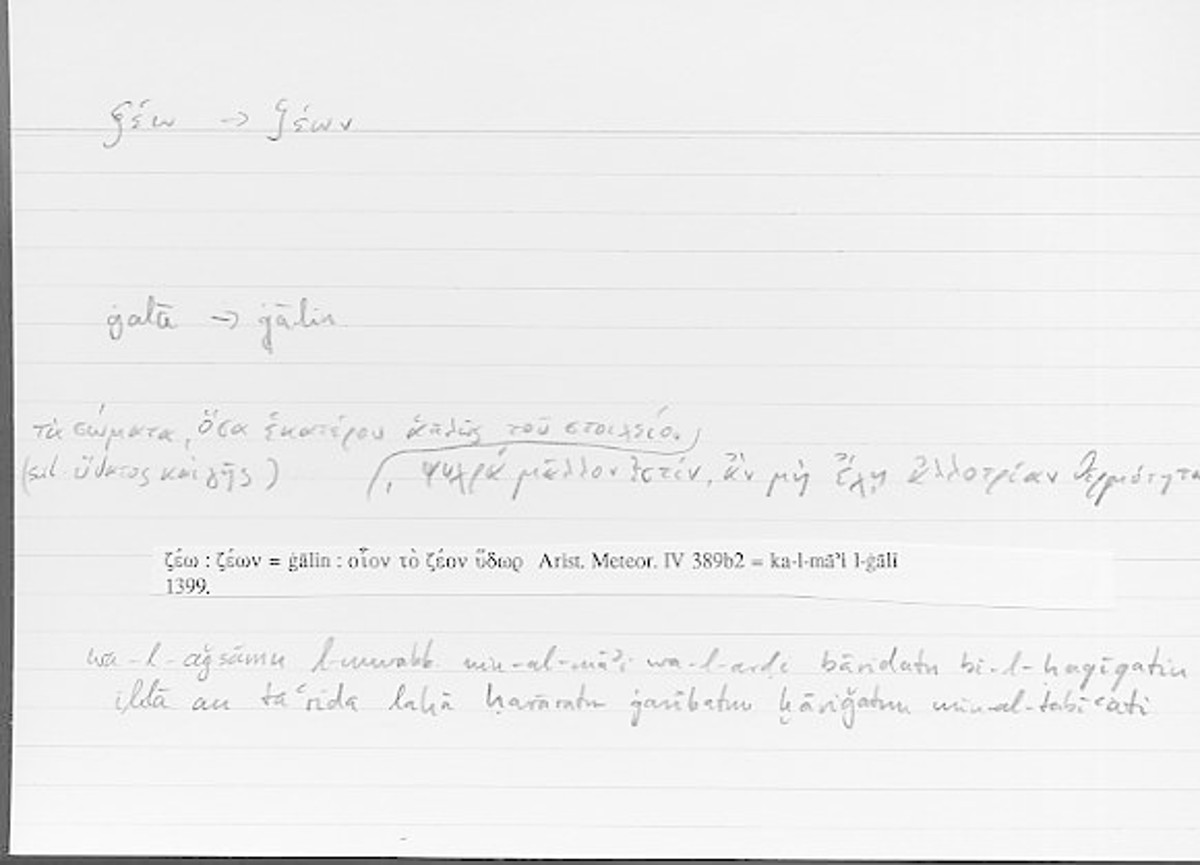 ζέω → ζέων
ġalā → ġālin
τὰ σώματα, ὅσα ἑκατέρου ἁπλῶς τοῦ στοιχείου
(scil. ὕδατος καὶ γῆς) , ψυχρὰ μᾶλλόν ἐστιν, ἂν μὴ ἔχῃ ἀλλοτρίαν θερμότητα
ζέω : ζέων = ġālin : οἷον τὸ ζέον ὕδωρ Arist. Meteor. IV 389b2 = ka-l-māʾi l-ġālī
1399.
wa-l-aǧsāmu l-murakk. min-al-māʾi wa-l-arḍi bāridatu bi-l-ḥaqīqatin
illā an taʿriḍa lahā ḥarāratu ġarībatun ḫāriǧatun min-al-ṭabīʿati